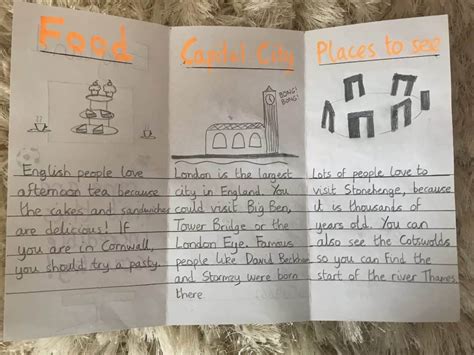 Food
English people love
afternoon tea because
the cakes and sandwiches
are delicious! If
you are in Cornwall,
you should try a pasty.
Capital City
BONG!
BONG!
London is the largest
city in England. You
could visit Big Ben,
Tower Bridge or the
London Eye. Famous
people like David Beckham
and Stormzy were born
there
Places to see
Lots of people love to
visit Stonehenge, because
it is thousands of
years old. You can
also see the Cotswolds
so you can find the
start of the river Thames.